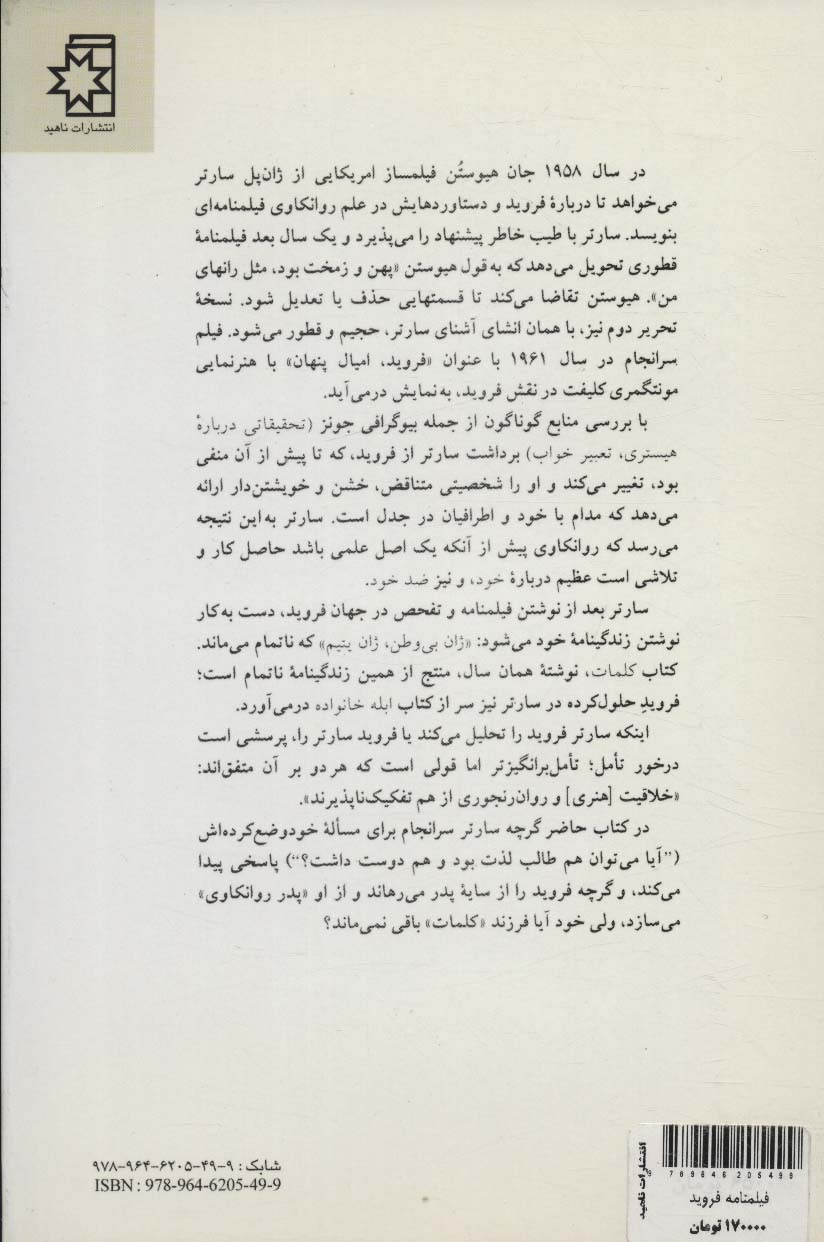 انتشارات ناهید
در سال ۱۹۵۸ جان هیوستُن فیلمساز امریکایی از ژان‌پل سارتر
می‌خواهد تا دربارهٔ فروید و دستاوردهایش در علم روانکاوی فیلمنامه‌ای
بنویسد. سارتر با طیب خاطر پیشنهاد را می‌پذیرد و یک سال بعد فیلمنامهٔ
قطوری تحویل می‌دهد که به قول هیوستن «پهن و زمخت بود، مثل رانهای
من». هیوستن تقاضا می‌کند تا قسمتهایی حذف یا تعدیل شود. نسخهٔ
تحریر دوم نیز، با همان انشای آشنای سارتر، حجیم و قطور می‌شود. فیلم
سرانجام در سال ۱۹۶۱ با عنوان «فروید، امیال پنهان» با هنرنمایی
مونتگمری کلیفت در نقش فروید، به نمایش درمی‌آید.
با بررسی منابع گوناگون از جمله بیوگرافی جونز (تحقیقاتی دربارهٔ
هیستری، تعبیر خواب) برداشت سارتر از فروید، که تا پیش از آن منفی
بود، تغییر می‌کند و او را شخصیتی متناقض، خشن و خویشتن‌دار ارائه
می‌دهد که مدام با خود و اطرافیان در جدل است. سارتر به این نتیجه
می‌رسد که روانکاوی پیش از آنکه یک اصل علمی باشد حاصل کار و
تلاشی است عظیم دربارهٔ خود، و نیز ضد خود.
سارتر بعد از نوشتن فیلمنامه و تفحص در جهان فروید، دست به کار
نوشتن زندگینامهٔ خود می‌شود: «ژان بی‌وطن، ژان یتیم» که ناتمام می‌ماند.
کتاب کلمات، نوشتهٔ همان سال، منتج از همین زندگینامهٔ ناتمام است؛
فرویدِ حلول‌کرده در سارتر نیز سر از کتاب ابله خانواده درمی‌آورد.
اینکه سارتر فروید را تحلیل می‌کند یا فروید سارتر را، پرسشی است
درخور تأمل؛ تأمل‌برانگیزتر اما قولی است که هر دو بر آن متفق‌اند:
«خلاقیت [هنری] و روان‌رنجوری از هم تفکیک‌ناپذیرند».
در کتاب حاضر گرچه سارتر سرانجام برای مسألهٔ خودوضع‌کرده‌اش
(”آیا می‌توان هم طالب لذت بود و هم دوست داشت؟“) پاسخی پیدا
می‌کند، و گرچه فروید را از سایهٔ پدر می‌رهاند و از او «پدر روانکاوی»
می‌سازد، ولی خود آیا فرزند «کلمات» باقی نمی‌ماند؟
شابک : ۹-۴۹-۶۲۰۵-۹۶۴-۹۷۸
ISBN : 978-964-6205-49-9
انتشارات ناهید
789646205499
فیلمنامه فروید
۱۷۰۰۰۰ تومان